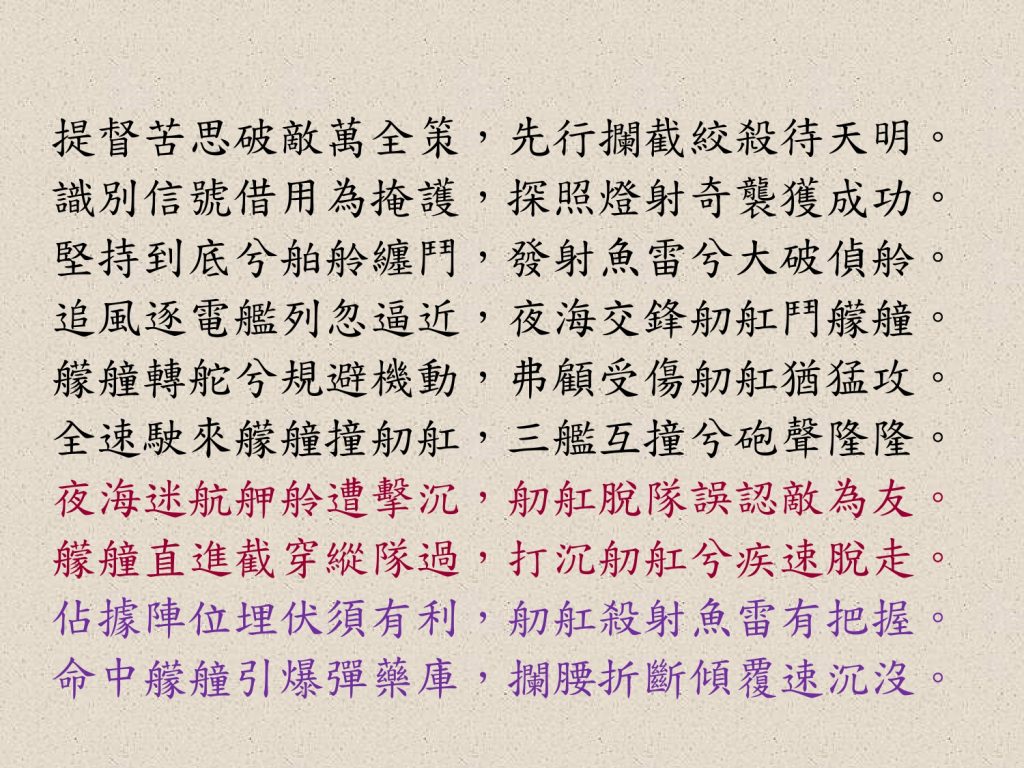 提督苦思破敵萬全策，先行攔截絞殺待天明。
識別信號借用為掩護，探照燈射奇襲獲成功。
堅持到底兮舶舲纏鬥，發射魚雷兮大破偵舲。
追風逐電艦列忽逼近，夜海交鋒舠舡鬥艨艟。
艨艟轉舵兮規避機動，弗顧受傷舠舡猶猛攻。
全速駛來艨艟撞舠舡，三艦互撞兮砲聲隆隆。
夜海迷航舺舲遭擊沉，舠舡脫隊誤認敵為友。
艨艟直進截穿縱隊過，打沉舠舡兮疾速脫走。
佔據陣位埋伏須有利，舠舡殺射魚雷有把握。
命中艨艟引爆彈藥庫，攔腰折斷傾覆速沉沒。